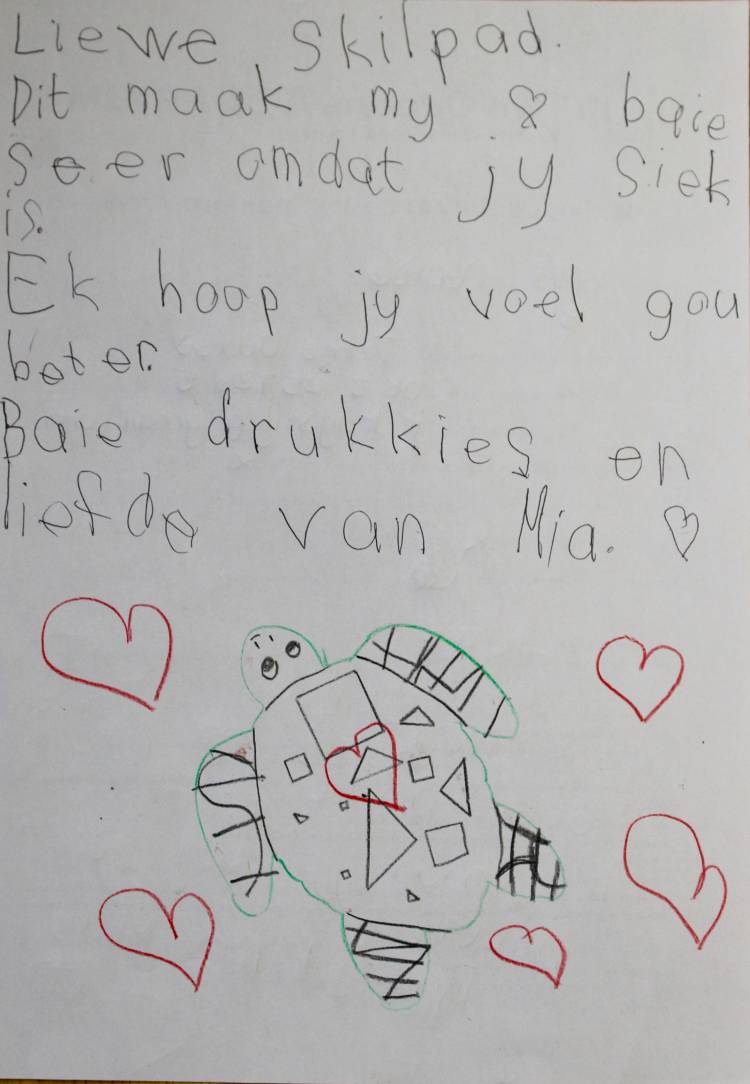 Liewe Skilpad.
Dit maak my ♡ baie
seer omdat jy siek
is.
Ek hoop jy voel gou
beter.
Baie drukkies en
liefde van Mia. ♡